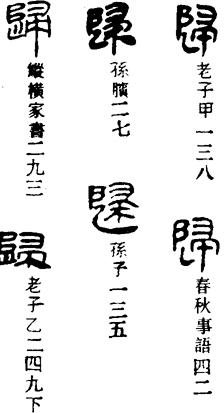 歸
老子甲一三八
歸
春秋事語四二
歸
孫臏二七
歸
孫子一三五
歸
縱橫家書二九三
歸
老子乙二四九下